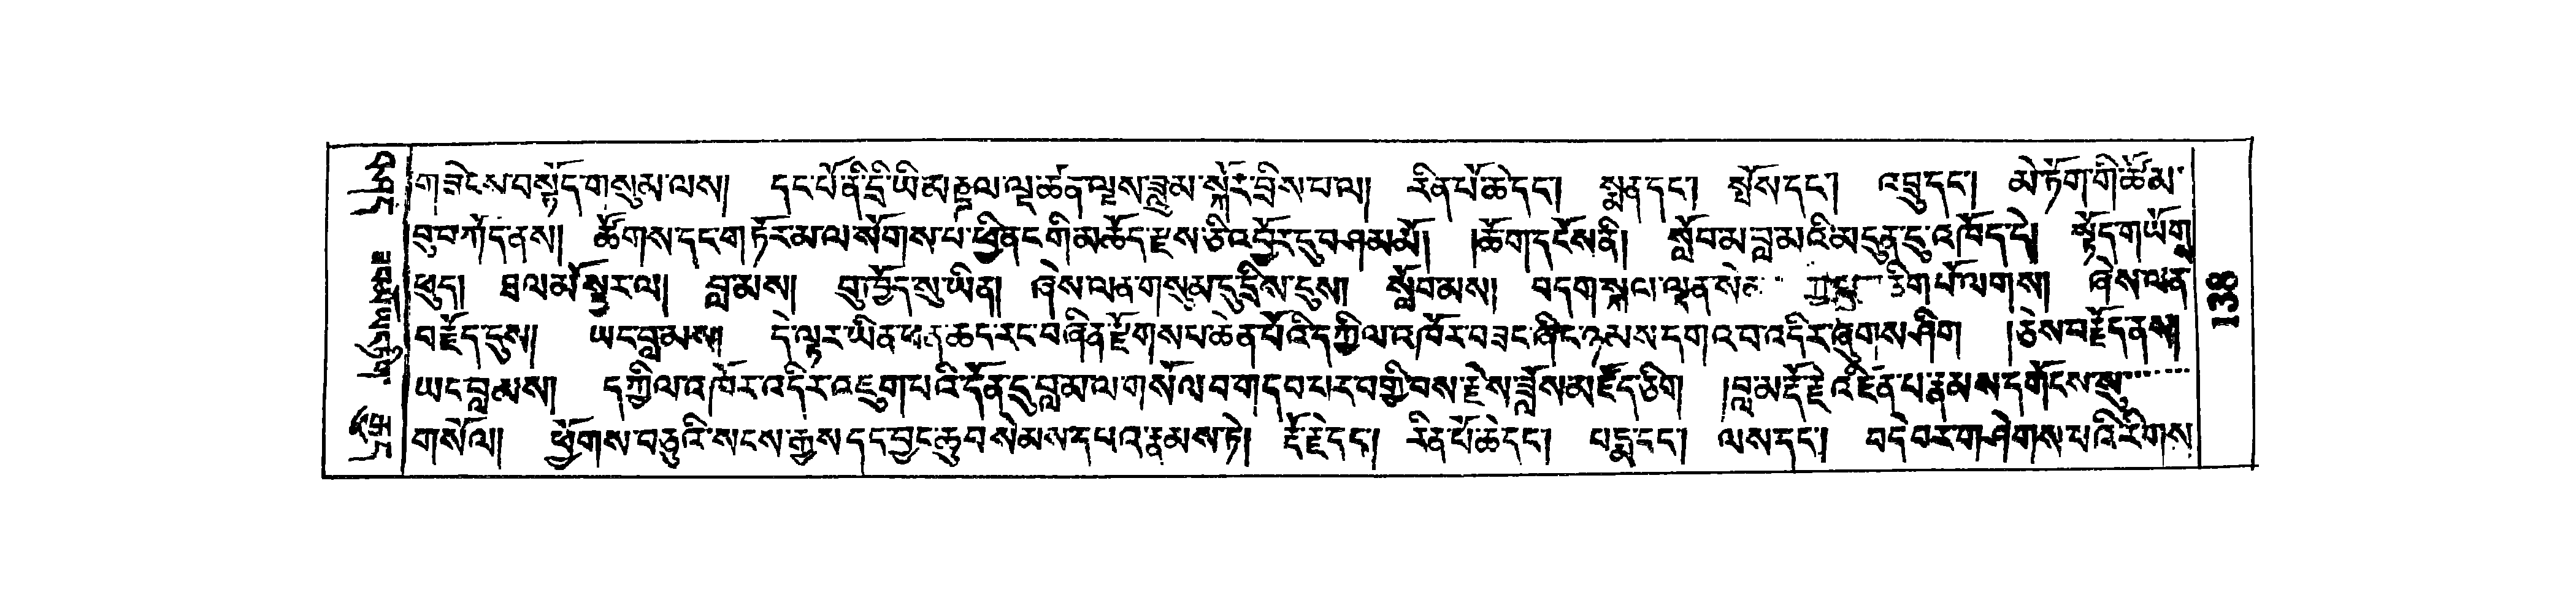 ག་ཟེངས་བསྟོད་གསུམ་ལས། དང་པོ་ནི་དྲི་ཡི་མཎྜལ་ལྔ་ཚོན་ལྔས་ཟླུམ་སྐོར་བྲིས་པ་ལ། རིན་པོ་ཆེ་དང་། སྨན་དང་། སྤོས་དང་། འབྲུ་དང་། མེ་ཏོག་གི་ཚོམ་
བུ་བཀོད་ནས། ཚོགས་དང་གཏོར་མ་ལ་སོགས་པ་ཕྱི་ནང་གི་མཆོད་རྫས་ཅི་འབྱོར་དུ་བཤམ་མོ། །ཆོ་ག་དངོས་ནི། སློབ་མ་བླ་མའི་མདུན་དུ་འཁོད་དེ། སྟོད་གཡོག་
ཕུད། ཐལ་མོ་སྦྱར་ལ། བླ་མས། བུ་ཁྱོད་སུ་ཡིན། ཞེས་ལན་གསུམ་དུ་དྲིས་དུས། སློབ་མས། བདག་སྐལ་ལྡན་ རིག་པོ་ལགས། ཞེས་ལན་
བརྗོད་དུས། ཡང་བླ་མས། དེ་ལྟར་ཡིན་ན་ཆད་རང་བཞིན་རྫོགས་པ་ཆེན་པོའི་དཀྱིལ་འཁོར་བཟང་ཞིང་ཉམས་དགའ་བ་འདིར་ཞུགས་ཤིག །ཅེས་བརྗོད་ནས།
ཡང་བླ་མས། དཀྱིལ་འཁོར་འདིར་འཇུག་པའི་དོན་དུ་བླ་མ་ལ་གསོལ་བ་གདབ་པར་བགྱི་བས་རྗེས་ཟློས་མཛོད་ཅིག །བླ་མ་རྡོ་རྗེ་འཛིན་པ་རྣམས་དགོངས་སུ་
གསོལ། ཕྱོགས་བཅུའི་སངས་རྒྱས་དང་བྱང་ཆུབ་སེམས་དཔའ་རྣམས་ཏེ། རྡོ་རྗེ་དང་། རིན་པོ་ཆེ་དང་། པདྨ་དང་། ལས་དང་། བདེ་བར་གཤེགས་པའི་རིགས་